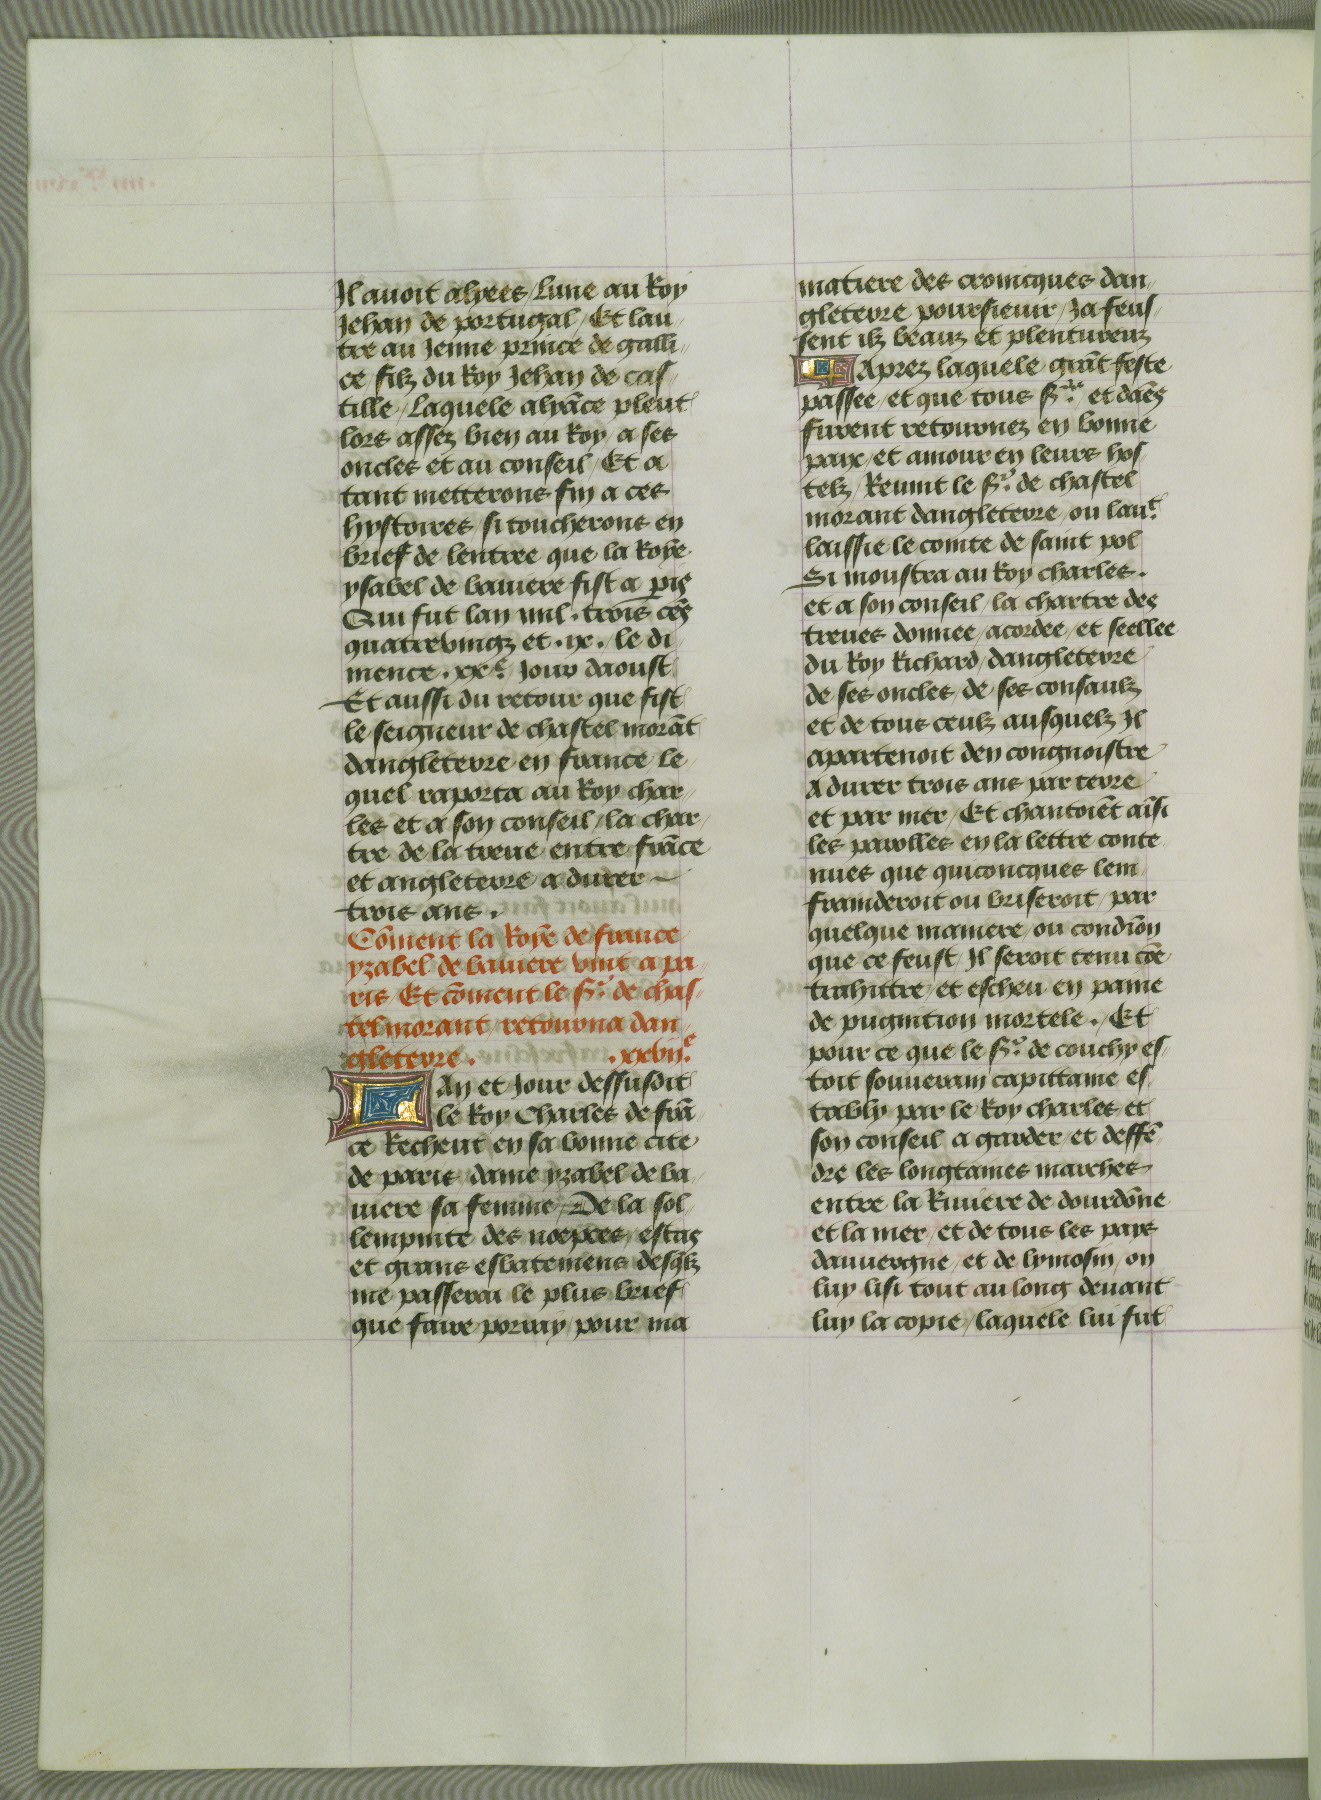 Il auoit alyees / Lune au Roy
Jehan de portugal / Et lau
tre au Jenne prince de galli
ce filz du Roy Jehan de cas
tille / Laquele alyāce pleut
lors assez bien au Roy / a ses
oncles et au conseil / Et a
tant metterons fin a ces
hystoires / si toucherons en
brief de lentree que la Royē
ysabel de bauiere fist a p̱is
Qui fut lan mil . trois cēs
quatrevingz et .ix. / le di
mence . xxe. Jour daoust
Et aussi du retour que fist
le seigneur de chastel morāt
dangleterre en france le
quel raporta au Roy char
les et a son conseil / la char
tre de la treue entre frāce
et angleterre a durer
trois ans .
Cōment la Royē de france
yzabel de bauiere vint a pa
ris Et cōment le Sr. de chas
telmorant retourna dan
gleterre . .xxviie.
Lan et Jour dessusdit
le Roy Charles de frā
ce Recheut en sa bonne cite
de paris dame yzabel de ba
uiere sa femme / De la sol
lempnite des noepces / estas
et grans esbatemens desqlz
me passerai le plus brief
que faire porray / pour ma
matiere des cronicques dan
gleterre poursieuir / Ja feus
sent ilz beaux et plentureux
Aprez laquele grāt feste
passee / et que tous Srs. et dāes
furent retournez en bonne
paix / et amour en leurs hos
telz / Reuint le Sr. de chastel
morant dangleterre / ou laut.
laissie le comte de saint pol
Si moustra au Roy charles .
et a son conseil / la chartre des
treues donnee / acordee / et seellee
du Roy Richard / dangleterre
de ses oncles / de ses consaulz
et de tous ceulz ausquelz Il
apartenoit den congnoistre
A durer trois ans par terre
et par mer / Et chantoiēt aīsi
les parolles en la lettre conte
nues que quiconcques lem
frainderoit ou briseroit / par
quelque maniere / ou condicōn
que ce feust / Il seroit tenu cōe
trahittre / et escheu en paine
de pugnition mortele . / Et
pour ce que le Sr. de couchy es
toit souuerain capittaine es
tably par le Roy charles et
son conseil a garder et deffē
dre les longtaines marches
entre la Riuiere de dourdōne
et la mer / et de tous les pays
dauuergne / et de lymosin / on
luy lisi tout au long deuant
luy la copie / laquele lui fut